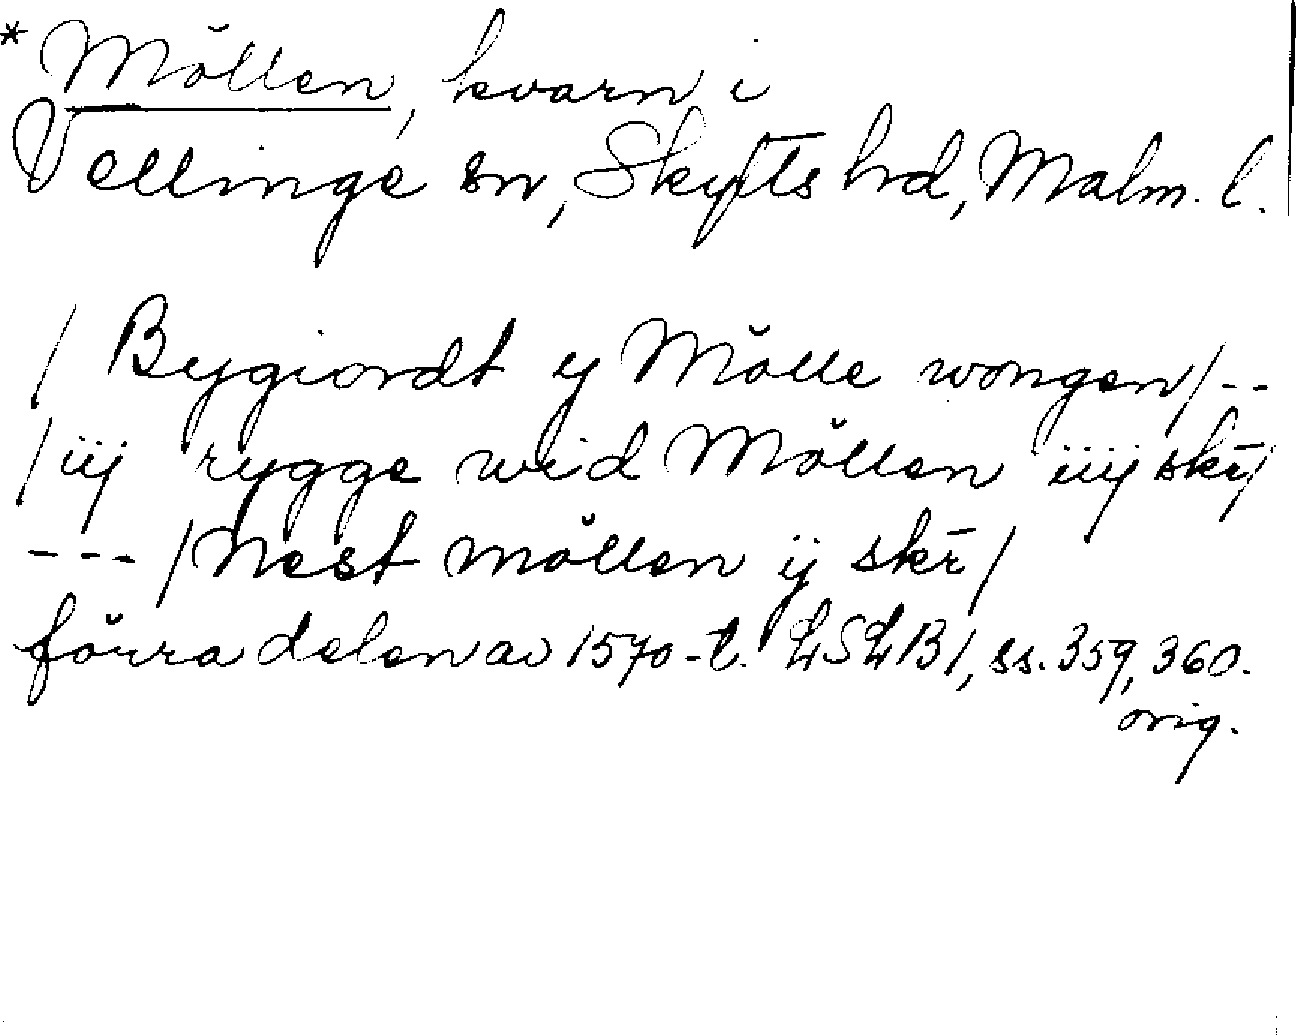 * Möllen, kvarn i
Vellinge sn, Skytts hrd, Malm. l.
/ Bygiordt y Mölle wongen/--
/iij rygge wid Möllen iiij skr̄/
---/Nest möllen ij skr̄/
förra delen av 1570-t. LSLB1, ss. 359, 360.
orig.